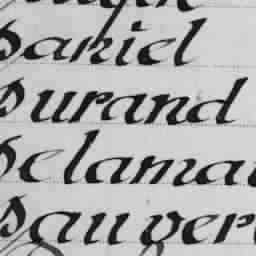 Daniel
Durand
Delamar
Dauver